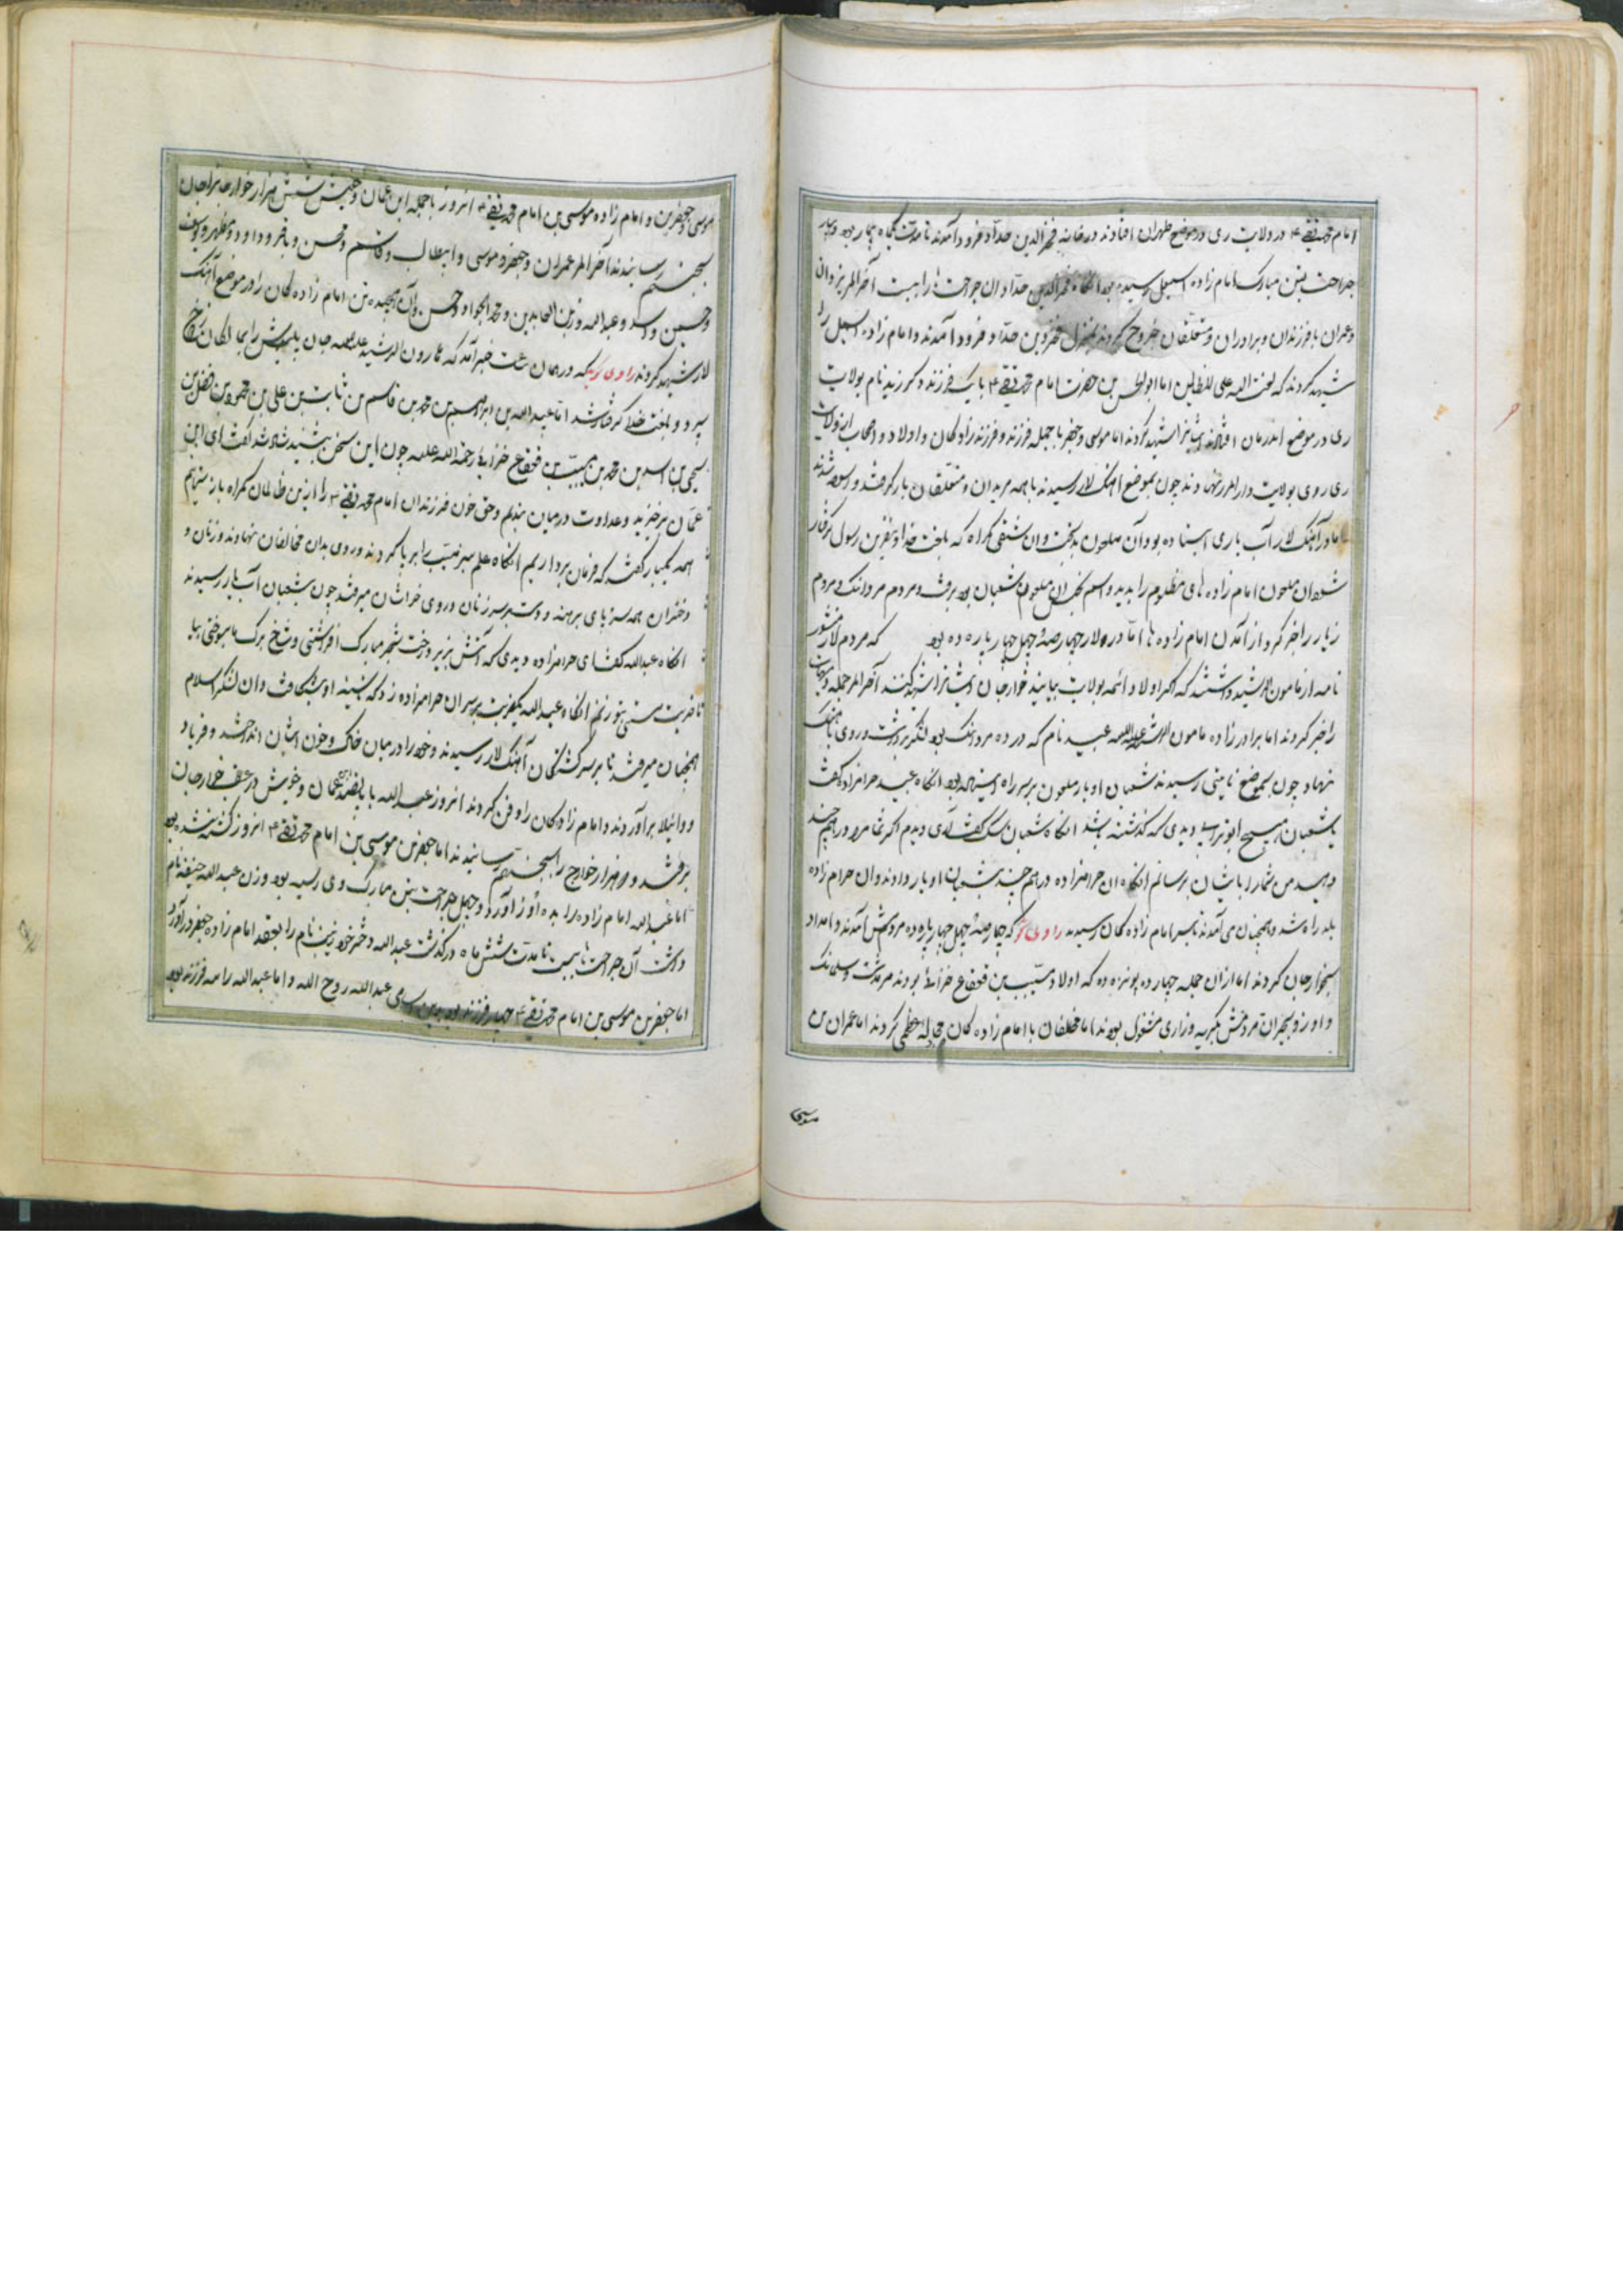 امام محمد تقی ۴ در ولایت ری در موضع طهران افتادند در خانه فخرالدین حداد فرود آمدند تا مدت یکماه بیمار بود و چهار
جراحت بتن مبارک امام زاده اسمعیل رسیده بود انکاه فخرالدین حداد ان جراحتها را ببست آخر الامر یزدان
و عمران با فرزندان و برادران و متعلقان خروج کردند بمنزل فخرالدین حداد فرود آمدند و امام زاده اسمعیل را
شهید کردند که لعنت الله علی الظالمین اما ابوالحسن بن حضرت امام محمد تقی ۴ با یک فرزند دکر زید نام بولایت
ری در موضع اندرمان افتادند ایشانرا شهید کردند اما موسی و جعفر با جمله فرزند و فرزند زادکان و اولاد و اصحاب از ولایت
ری روی بولایت دارالمرز نهادند چون بموضع اهنک لار رسیدند با همه مریدان و متعلقان بار کرفتند و
اما در آهنک لار آب یاری ایستاده بود و آن ملعون بدبخت و ان شقی کمراه که بلعنت خدا و نفرین رسول کرفتار
شد ان ملعون امام زاده های مظلوم را بدید و اسم ان ملعون شعبان بود برفت و مردم مردانک و مردم
زیار را خبر کرد از آمدن امام زاده ها اما در ولار چهار صد و چهل چهار پاره ده بود که مردم لار منشور
نامه از مامون الرشید داشتند که اکر اولاد ائمه بولایت بیایند خوارجان ایشانرا شهید کنند آخر الامر جمله
را خبر کردند اما برادر زاده مامون الرشید عبید نام که در ده مردانک بود لشکر برداشت و روی باهنک
نهاد چون بموضع رسیدند شعبان اویار ملعون بر سر راه ایستاده بود انکاه عبید حرامزاده کفت
یا شعبان هیچ ابوترابی دیدی که کذشته باشد انکاه شعبان سک کفت آری دیدم اکر شما مرا درهم چند
دهید من شما را بایشان برسانم انکاه ان حرامزاده درهم چند بشعبان اویار دادند و ان حرام زاده
بلد راه شد و همچنان می آمدند تا بسر امام زاده کان رسیدند راوی کوید که چهار صد و چهل چهار پاره ده مردمش آمدند و امداد
بخوارجان کردند اما از ان جمله چهارده پونزده ده که اولاد مسیب بن قعقاع خزاعی بودند
و اورزو بحیران مردمش بکریه و زاری مشغول بودند اما مخلفان با امام زاده کان مجادله عظمی کردند اما عمران بن
موسی
موسی و جعفر بن و امام زاده موسی بن امام محمد تقی ۴ انروز با جمله ابن عمان و خویش شش هزار خوارجانرا بجان
بجهنم رسانیدند آخر الامر عمران و جعفر و موسی و ابیطالب و قاسم و محسن و باقر و داود و مطهر و یوسف
و حسین و و عبدالله و زین العابدین و محمد الجواد و حسن و آن هیجده تن امام زاده کان را در موضع آهنک
لار شهید کردند راوی کوید که در همان ساعت خبر آمد که هارون الرشید جان پلیدش را بمالکان دوزخ
سپرد و بلعنت خدا کرفتار شد اما عبدالله بن ابراهیم بن محمد بن قاسم بن ثابت بن علی بن محمود بن فضل بن
یحیی بن اسد بن محمد بن مسیب بن قعقاع خزاعی رحمة الله علیه چون این سخن بشنید شاد شد کفت ای ابن
عمان برخیزید و عداوت در میان بندیم و حق خون فرزندان امام محمد تقی ۴ را ازین ظالمان کمراه باز ستانیم
همه یکبار کفتند که فرمان برداریم انکاه علم سبز مسیب را بر پا کردند و روی بدان مخالفان نهادند و زنان و
دختران همه سر و پای برهنه و دست بر سر زنان و روی خراشان میرفتند چون بشعبان آب یار رسیدند
انکاه عبدالله کفت ای حرامزاده دیدی که آتش بزیر درخت شجر مبارک افروختی و شاخ و برک ما سوختی بیا
تا ضربت مستی بتو زنم انکاه عبدالله یکضربت بر سر ان حرامزاده زد که تا سینه او بشکافت و ان لشکر اسلام
همچنان میرفتند تا بر سر کشتکان آهنک لار رسیدند و خود را در میان خاک و خون ایشان انداختند و فریاد
و واویلا برآوردند و امام زادکان را دفن کردند انروز عبدالله با پانصد ابن عمان و خویش در عقب خوارجان
برفتند و دو هزار خوارج را بجهنم رسانیدند اما جعفر بن موسی بن امام محمد تقی ۴ انروز کشته نشده بود
اما عبدالله امام زاده را بده اوز آورد و چهل جراحت بتن مبارک وی رسیده بود و زن عبدالله حنیفه نام
داشت آن جراحتها ببست تا مدت شش ماه درکذشت عبدالله دختر خود زینب نام را بعقد امام زاده جعفر درآورد
اما جعفر بن موسی بن امام محمد تقی ۴ چهار فرزند عبدالله روح الله و اما عبدالله را سه فرزند بود